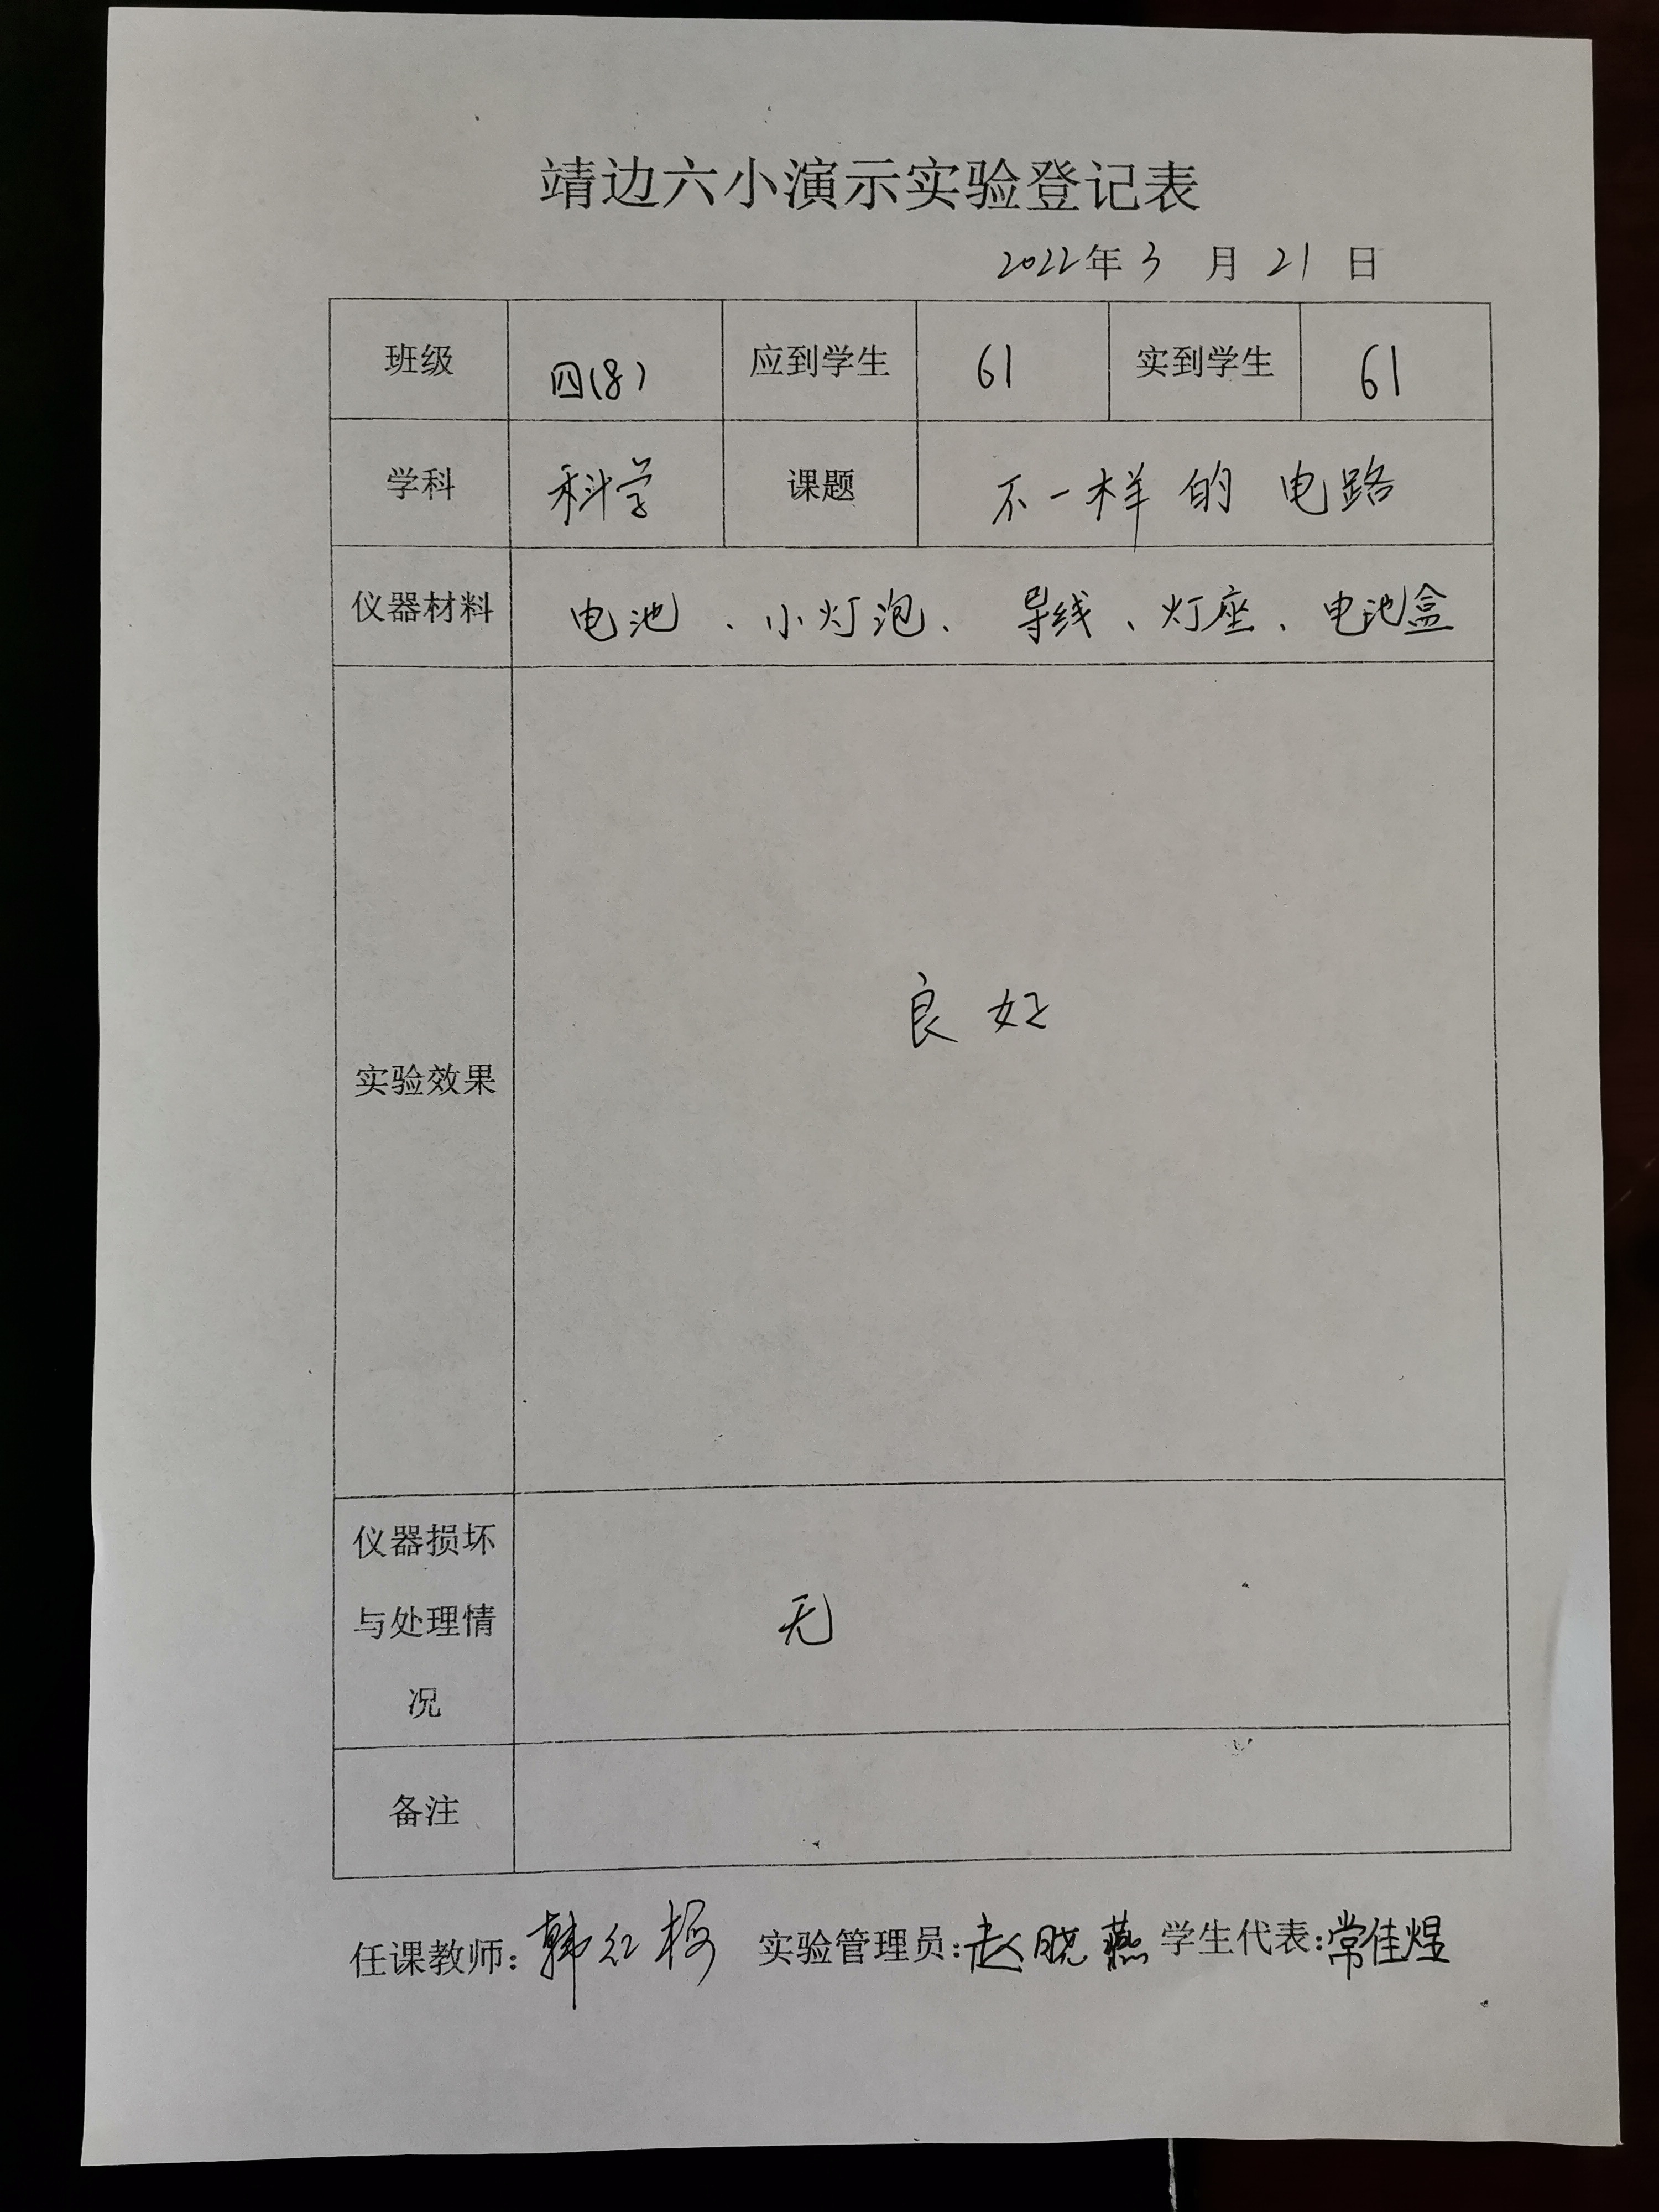 靖边六小演示实验登记表
2022年3月21日
班级 四(8) 应到学生 61 实到学生 61
学科 科学 课题 不一样的电路
仪器材料 电池、小灯泡、导线、灯座、电池盒
实验效果 良好
仪器损坏
与处理情
况
无
备注
任课教师:韩红梅 实验管理员:赵晓燕 学生代表:常佳煜